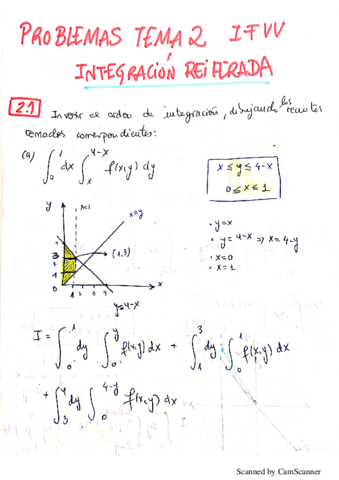 PROBLEMAS TEMA 2 IFVV
INTEGRACIÓN REITERADA
2.1 Invertir el orden de integración, dibujando los recintos
tomados correspondientes:
(a) ∫₀¹ dx ∫ₓ^{4-x} f(x,y) dy
x ≤ y ≤ 4-x
0 ≤ x ≤ 1
y
x=1
x=y
4
3
(1,3)
1
0
1 2 3 4
x
y=4-x
• y=x
• y=4-x ⇒ x=4-y
• x=0
• x=1
I = ∫₀¹ dy ∫₀^y f(x,y) dx + ∫₁³ dy ∫₀¹ f(x,y) dx
+ ∫₃⁴ dy ∫₀^{4-y} f(x,y) dx
Scanned by CamScanner